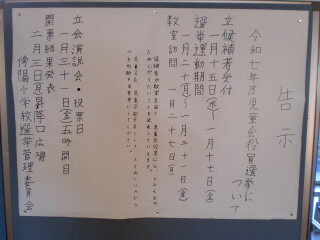 告示
令和七年度児童会役員選挙に
ついて
立候補者受付
一月十五日(水)～一月十七日(金)
選挙運動期間
一月二十日(月)～一月三十一日(金)
教室訪問 一月二十七日(月)
立会演説会・投票日
一月三十一日(金)五時間目
開票結果発表
二月三日(月)昇降口広場
傍陽小学校選挙管理委員会